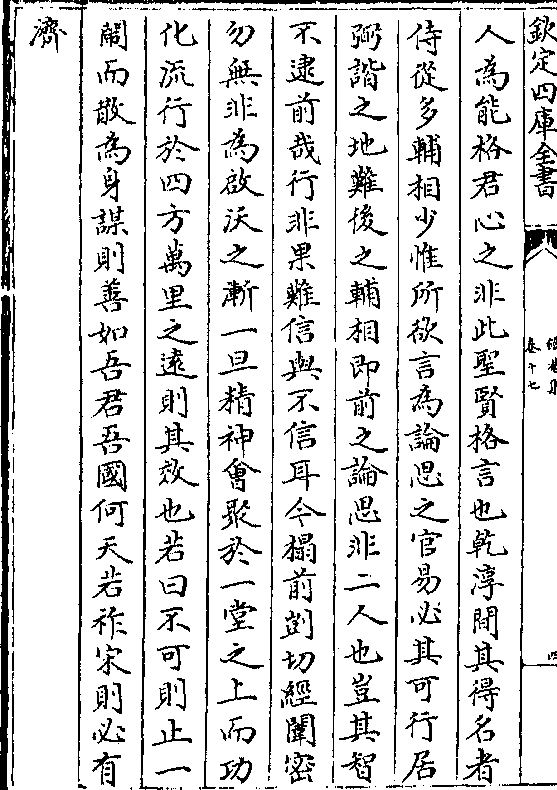 欽定四庫全書
卷十七
四
人為能格君心之非此聖賢格言也乾淳間其得名者
侍從多輔相少惟所欲言為論思之官易必其可行居
弼諧之地難後之輔相即前之論思非二人也豈其智
不逮前哉行非果難信與不信耳今榻前剴切經闈密
勿無非為啟沃之漸一旦精神會聚於一堂之上而功
化流行於四方萬里之遠則其效也若曰不可則止一
鬨而散為身謀則善如吾君吾國何天若祚宋則必有
濟